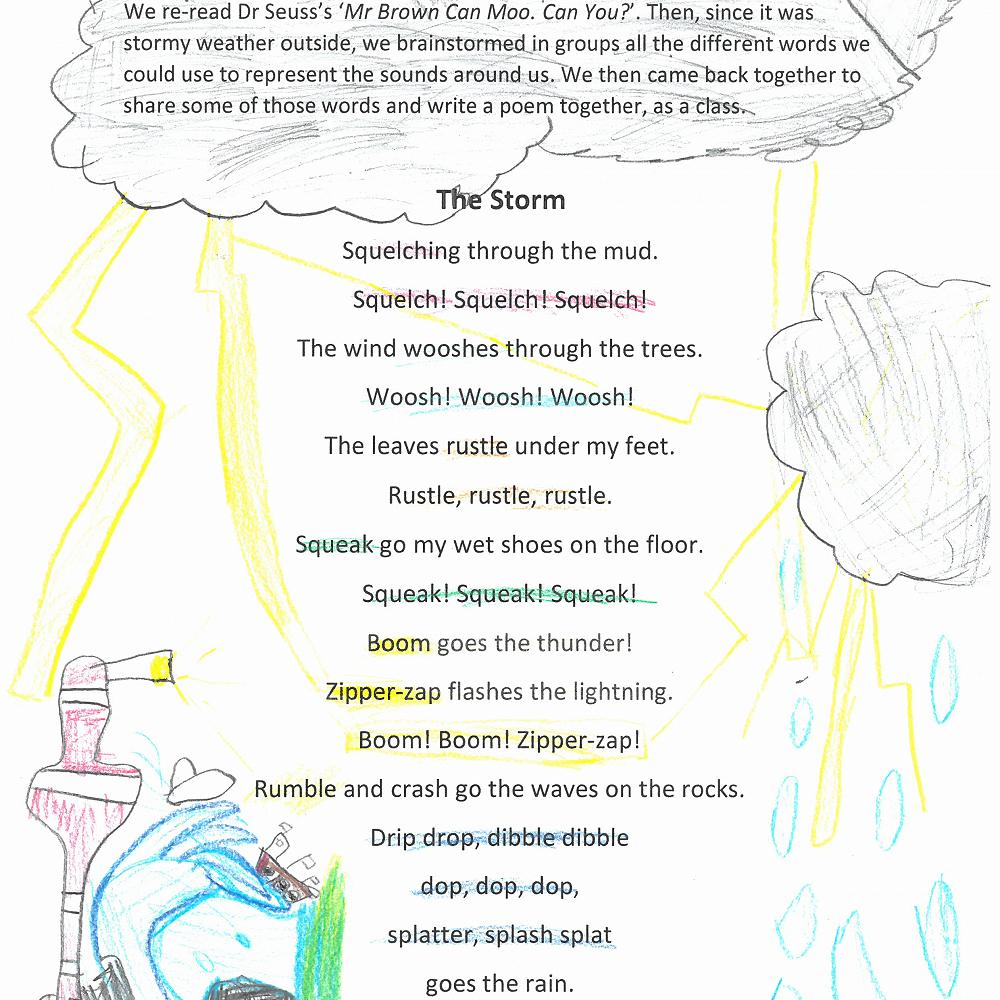 We re-read Dr Seuss's 'Mr Brown Can Moo. Can You?'. Then, since it was
stormy weather outside, we brainstormed in groups all the different words we
could use to represent the sounds around us. We then came back together to
share some of those words and write a poem together, as a class.
The Storm
Squelching through the mud.
Squelch! Squelch! Squelch!
The wind wooshes through the trees.
Woosh! Woosh! Woosh!
The leaves rustle under my feet.
Rustle, rustle, rustle.
Squeak go my wet shoes on the floor.
Squeak! Squeak! Squeak!
Boom goes the thunder!
Zipper-zap flashes the lightning.
Boom! Boom! Zipper-zap!
Rumble and crash go the waves on the rocks.
Drip drop, dibble dibble
dop, dop, dop,
splatter, splash splat
goes the rain.